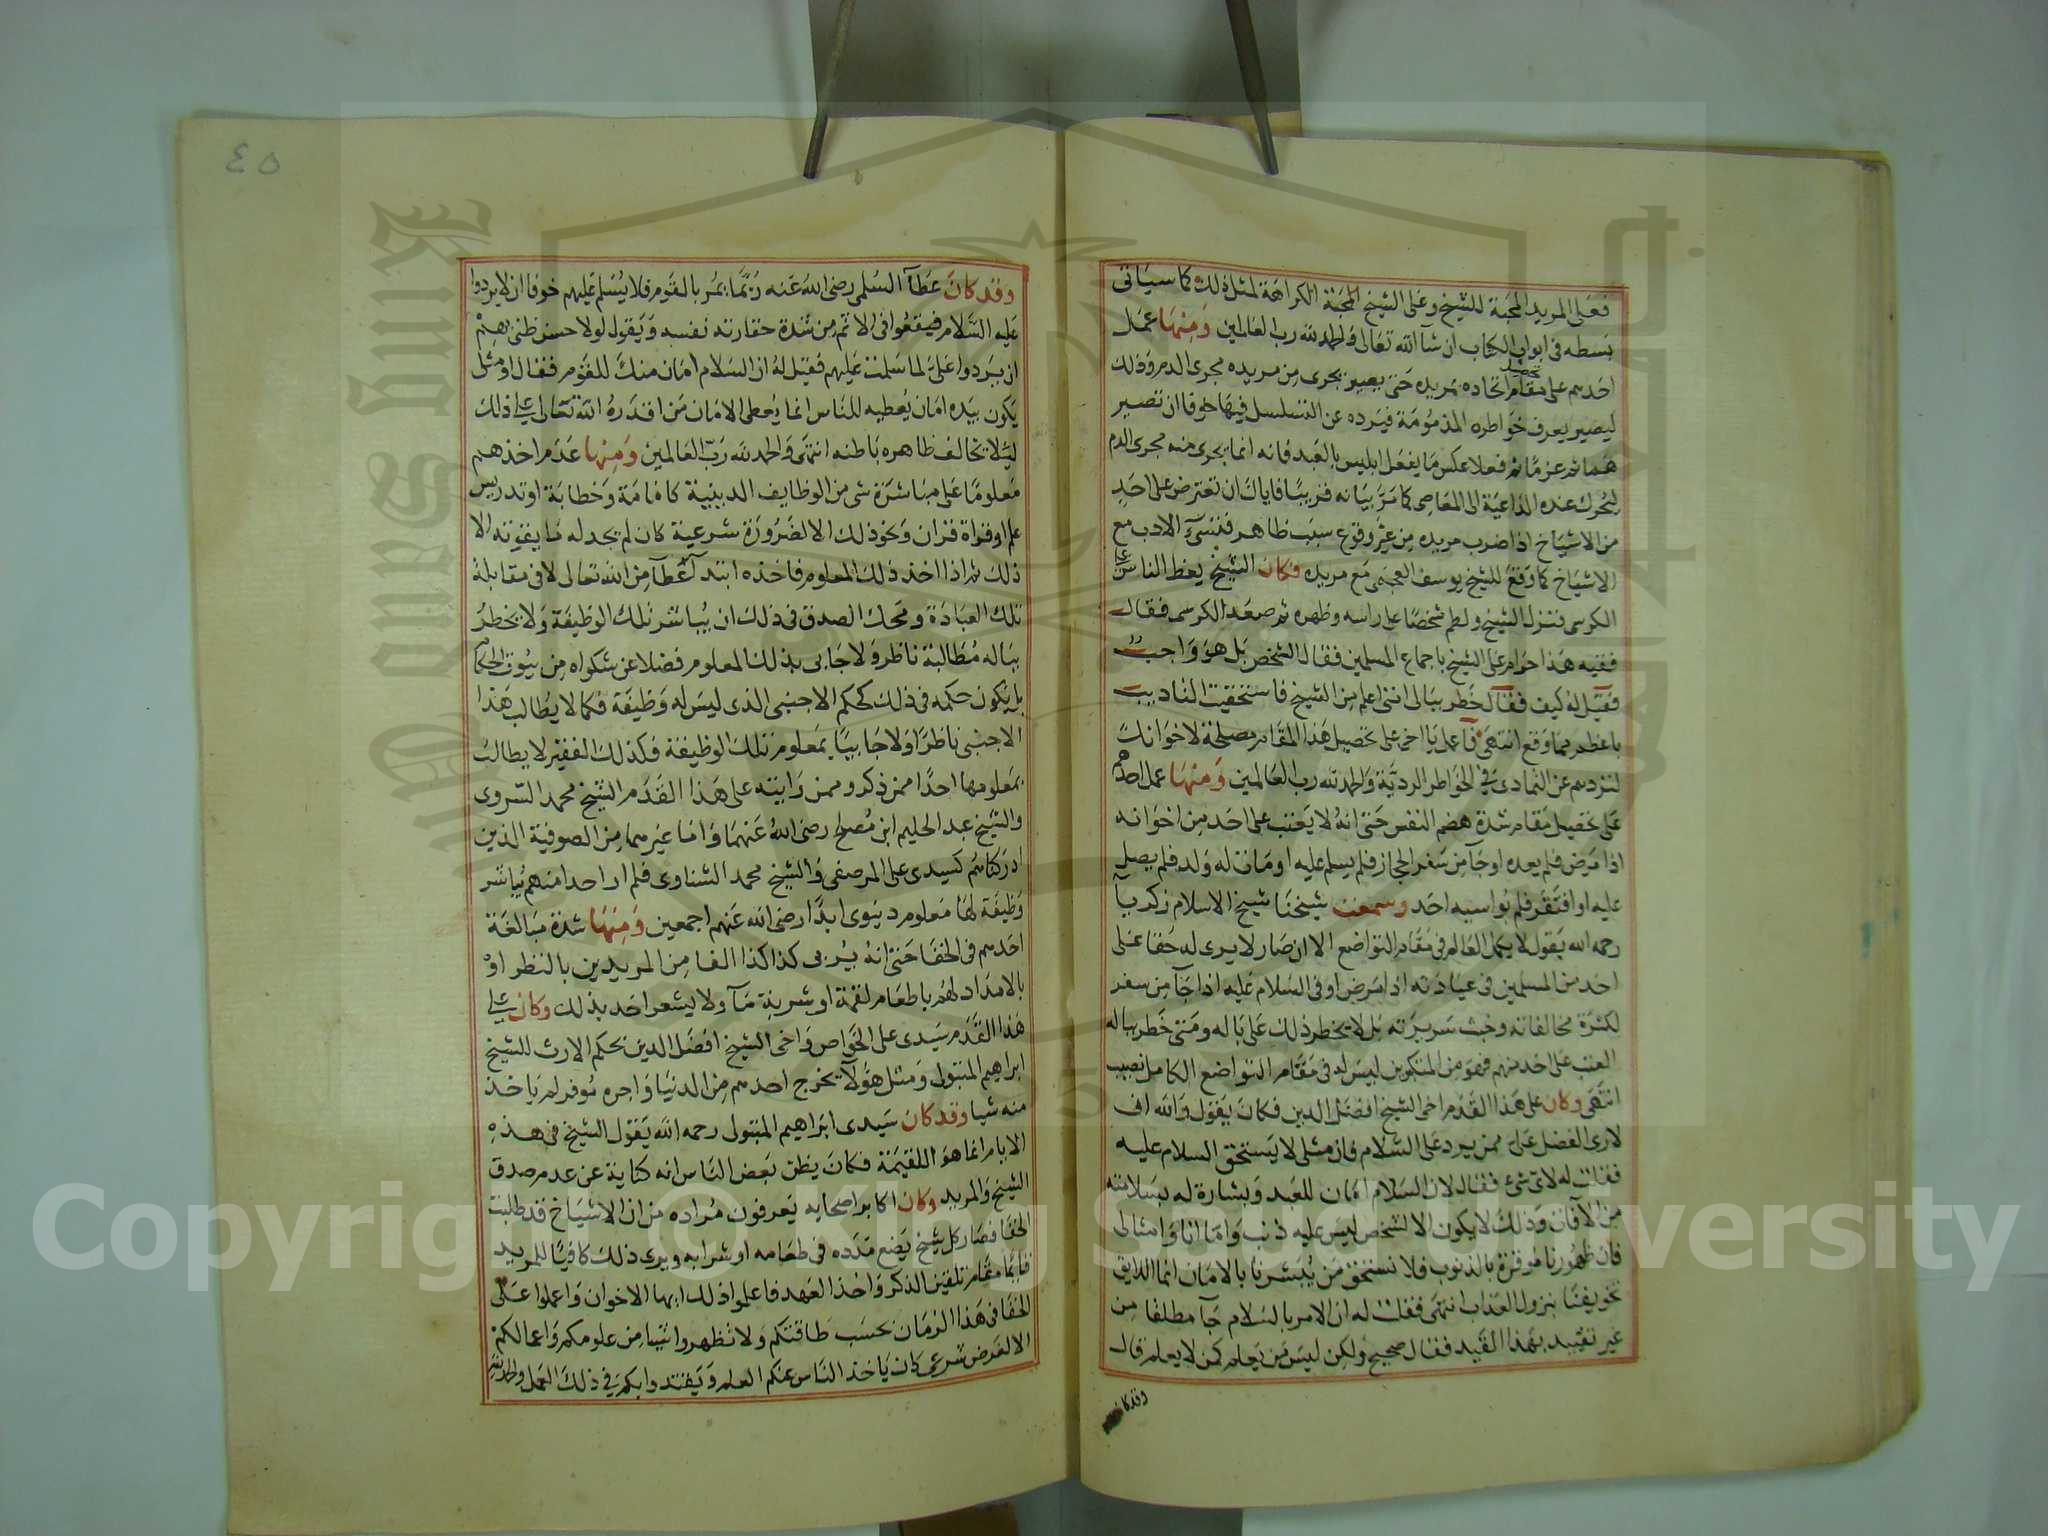 فعلى المريد المحبة للشيخ وعلى الشيخ المحبة الكراهة لمثل ذلك كما سياتى
بسطه فى ابواب الكتاب ان شآ الله تعالى والحمد لله رب العالمين ومنها عمل
احدهم على تحصيل مقام اتحاده بمريده حتى يصير يجرى من مريده مجرى الدم وذلك
ليصير يعرف خواطره المذمومة فيرده عن التسلسل فيها خوفا ان تصير
هما ثم عزما ثم فعلا عكس ما يفعل ابليس بالعبد فانه انما يجرى منه مجرى الدم
ليحرك عنده الداعية الى المعاصى كما مر بيانه قريبا فاياك ان تعترض على احد
من الاشياخ اذا ضرب مريده من غير وقوع سبب ظاهر فتسىء الادب مع
الاشياخ كما وقع للشيخ يوسف العجمى مع مريده فكان الشيخ يعظ الناس على
الكرسى فنزل الشيخ ولطم شخصا على راسه وظهره ثم صعد الكرسى فقال
فقيه هذا حرام على الشيخ باجماع المسلمين فقال الشخص بل هو واجب
فقيل له كيف فقال خطر ببالى اننى اعلم من الشيخ فاستحقيت التاديب
باعظم مما وقع انتهى فاعمل يا اخى على تحصيل هذا المقام مصلحة لاخوانك
لتردهم عن التمادى فى الخواطر الردية والحمد لله رب العالمين ومنها عمل احدهم
على تحصيل مقام شدة هضم النفس حتى انه لا يعتب على احد من اخوانه
اذا مرض فلم يعده او جآ من سفر الحجاز فلم يسلم عليه او مات له ولد فلم يصل
عليه او افتقر فلم يواسيه احد وسمعت شيخنا شيخ الاسلام زكريآ
رحمه الله يقول لا يكمل العالم فى مقام التواضع الا ان صار لا يرى له حقا على
احد من المسلمين فى عيادته اذا مرض او فى السلام عليه اذا جآ من سفر
لكثرة مخالفاته وخبث سريرته بل لا يخطر ذلك على باله ومتى خطر بباله
العتب على احد منهم فهو من المتكبرين ليس له فى مقام التواضع الكامل نصيب
انتهى وكان على هذا القدم اخى الشيخ افضل الدين فكان يقول والله انى
لارى الفضل على ممن يرد على السلام فان مثلى لا يستحق السلام عليه
فقلت له لاى شئ فقال لان السلام امان للعبد وبشارة له بسلامته
من الآفات وذلك لا يكون الا لشخص ليس عليه ذنب واما انا وامثالى
فان ظهورنا موقرة بالذنوب فلا نستحق من يبشرنا بالامان انما اللايق
تخويفنا بنزول العذاب انتهى فقلت له ان الامر بالسلام جآ مطلقا من
غير تقييد بهذا القيد فقال صحيح ولكن ليس من يعلم كمن لا يعلم قال
وقد كان
٤٥
وقد كان عطآ السلمى رضى الله عنه ربما يمر بالقوم فلا يسلم عليهم خوفا ان لا يردوا
عليه السلام فيقعوا فى الاثم من شدة حقارته نفسه ويقول لولا حسن ظنى بهم
ان يردوا على لما سلمت عليهم فقيل له ان السلام امان منك للقوم فقال او مثلى
يكون بيده امان يعطيه للناس انما يعطى الامان من اقدره الله تعالى على ذلك
ليلا تخالف ظاهره باطنه انتهى والحمد لله رب العالمين ومنها عدم اخذهم
معلوما على مباشرة شى من الوظايف الدينية كامامة وخطابة او تدريس
علم او قراة قران ونحو ذلك الا لضرورة شرعية كان لم يجد له ما يقوته الا
ذلك ثم اذا اخذ ذلك المعلوم فاخذه ابتدآ عطآ من الله تعالى لا فى مقابلة
تلك العبادة ومحك الصدق فى ذلك ان يباشر تلك الوظيفة ولا يخطر
بباله مطالبة ناظر ولا جابى بذلك المعلوم فضلا عن شكواه من بيوت الحكام
بل يكون حكمه فى ذلك كحكم الاجنبى الذى ليس له وظيفة فكما لا يطالب هذا
الاجنبى ناظرا ولا جابيا بمعلوم تلك الوظيفة فكذلك الفقير لا يطالب
بمعلومها احدا ممن ذكر وممن رايته على هذا القدم الشيخ محمد السروى
والشيخ عبد الحليم ابن مصلح رضى الله عنهما واما غيرهما من الصوفية الذين
ادركناهم كسيدى على المرصفى والشيخ محمد الشناوى فلم ار احدا منهم يباشر
وظيفة لها معلوم دينوى ابدا رضى الله عنهم اجمعين ومنها شدة مبالغة
احدهم فى الخفا حتى انه يربى كذا كذا الفا من المريدين بالنظر او
بالامداد لهم باطعام لقمة او شربة مآ ولا يشعر احد بذلك وكان على
هذا القدم سيدى على الخواص واخى الشيخ افضل الدين بحكم الارث للشيخ
ابراهيم المتبولى ومثل هؤلآ يخرج احدهم من الدنيا واجره موفر لم ياخذ
منه شيا وقد كان سيدى ابراهيم المتبولى رحمه الله يقول الشيخ فى هذه
الايام انما هو اللقيمة فكان يظن بعض الناس انه كناية عن عدم صدق
الشيخ والمريد وكان اكابر اصحابه يعرفون مراده من ان الاشياخ قد طلبت
الخفا فصار كل شيخ يضع مدده فى طعامه او شرابه ويرى ذلك كافيا للمريد
قايما مقام تلقين الذكر واخذ العهد فاعلموا ذلك ايها الاخوان واعملوا على
الخفا فى هذا الزمان بحسب طاقتكم ولا تظهروا شيا من علومكم واعمالكم
الا لغرض شرعى كان ياخذ الناس عنكم العلم ويقتدوا بكم فى ذلك العمل والحمد لله
Copyright © King Saud University